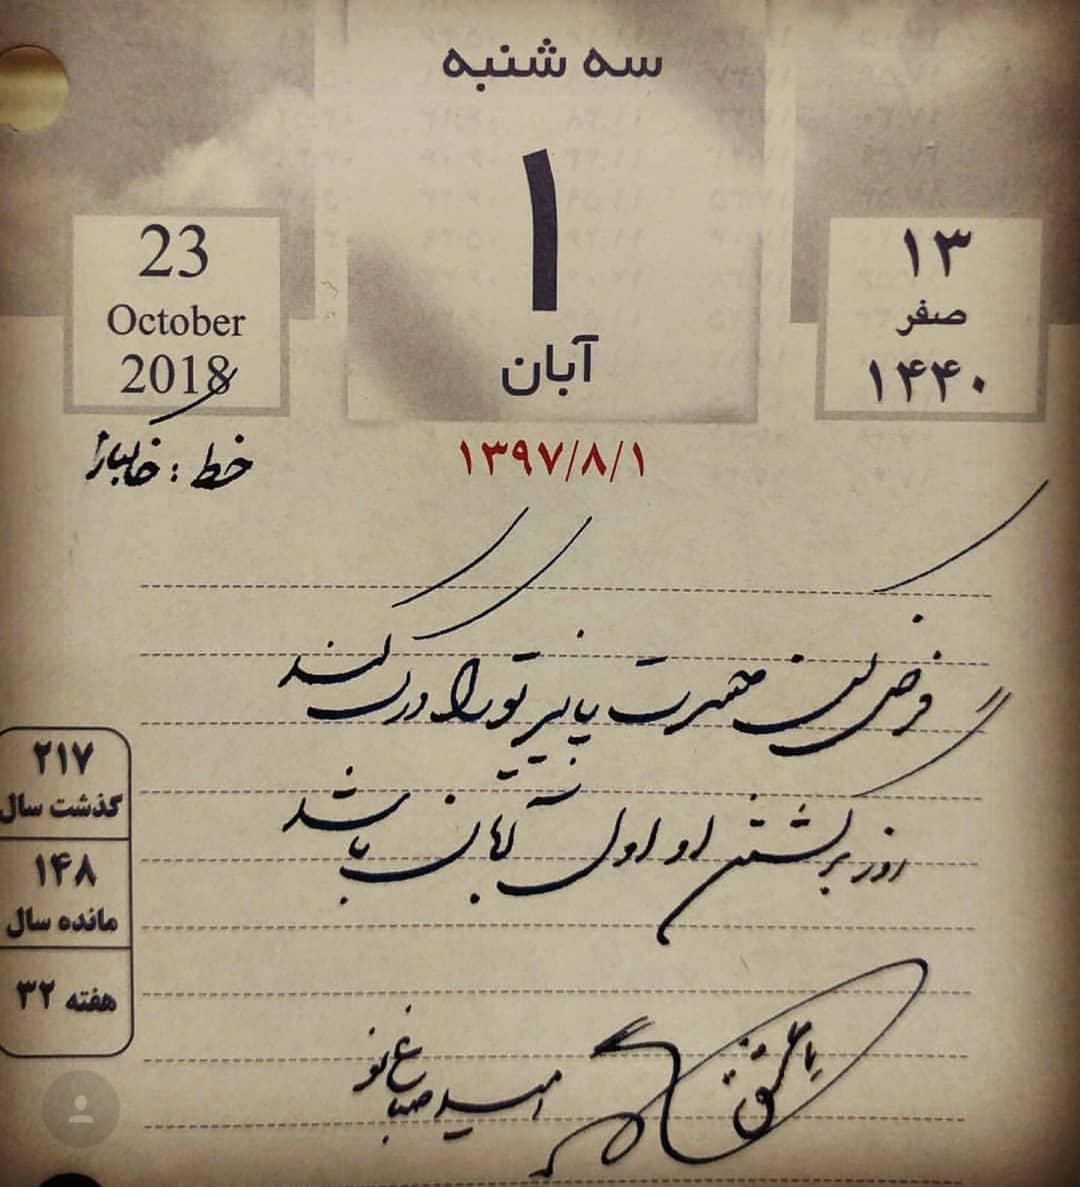 سه شنبه
۱
آبان
۱۳۹۷/۸/۱
23
October
2018
۱۳
صفر
۱۴۴۰
خط :
فرض کن حسرت پاییز تو را درک کند
روز برگشتن او اول آبان باشد
با عشق
امید صباغ نو
۲۱۷
گذشت سال
۱۴۸
مانده سال
هفته ۳۲